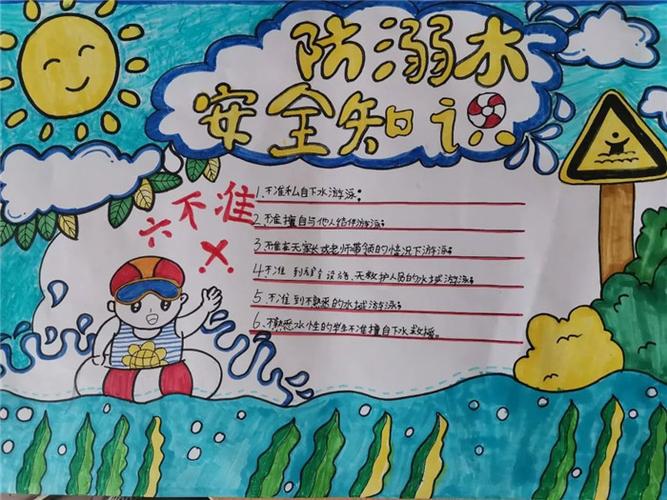 防溺水
安全知识
六不准
1.不准私自下水游泳;
2.不准擅自与他人结伴游泳;
3.不准在无家长或老师带领的情况下游泳;
4.不准到无安全设施、无救护人员的水域游泳;
5.不准到不熟悉的水域游泳;
6.不熟悉水性的学生不准擅自下水救援。